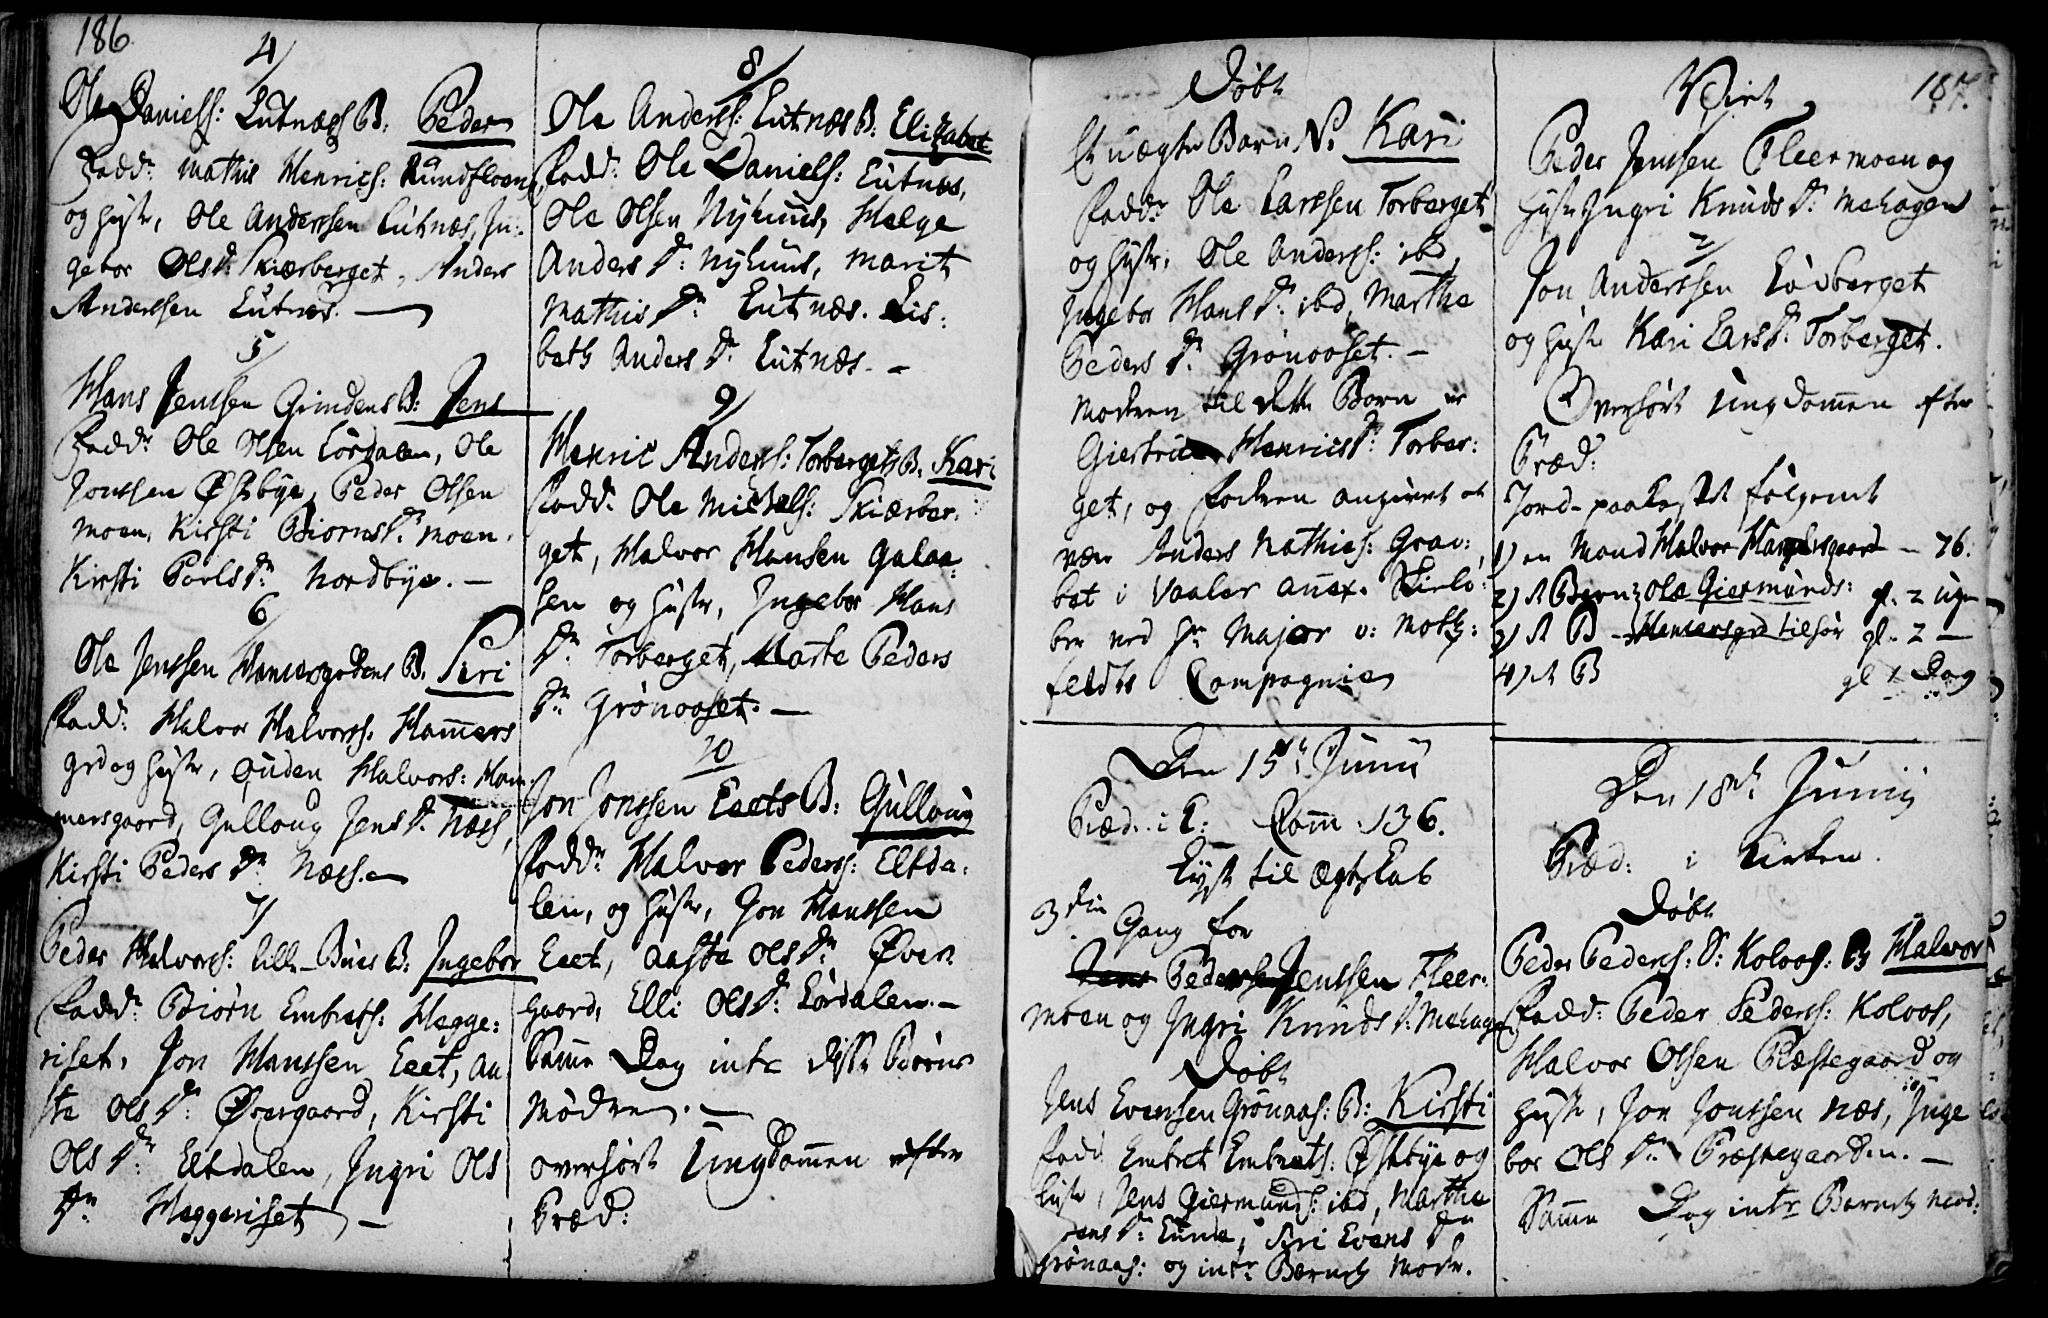 186.
4/
Ole Daniels: Lutnæss B: Peder
Fadd: Mathis Henrics: Rundfloen
og hustr, Ole Anderssen Lutnæs, In-
gebor Ols Dr Skiærberget, Anders
Anderssen Lutnæs. —
5/
Hans Jenssen Grindens B: Jens
Fadd: Ole Olsen Lördalen, Ole
Jonssen Østbye, Peder Olsen
moen, Kirsti Biorns Dr moen.
Kirsti Povls Dr Nordbye. —
6/
Ole Jenssen Hamersgrdens B. Siri
Fadd: Halvor Halvorss. Hamers
grd og hustr, Guden Halvors: Ham-
mersgaard, Gulloug Jens Dr Næss,
Kirsti Peders Dr Næss. —
7/
Peder Halvors: lille Bues B: Ingebor
Fadd: Biörn Embrets: Hegge:
riset, Jon Hanssen Eeet, Aa
ste Ols Dr Øvergaard, Kirsti
Ols Dr Eltdalen, Ingri Ols
Dr Heggeriset —
8/
Ole Anderss: Lutnæs B: Elizabet
Fadd: Ole Daniels: Lutnæs,
Ole Olsen Nyhuus, Helge
Anders Dr: Nyhuus, Marit
Mathis Dr Lutnæs. Lis:
beth Anders Dr Lutnæs. —
9/
Henric Anders: Torbergets B. Kari
Fadd. Ole Michels: Skiærber-
get, Halvor Hansen Galaa:
sen og hustr, Ingebor Hans
Dr Torberget, Marte Peders
Dr Grönoset. —
10
Jon Jonssen Eeets B: Gulloug
Fadd: Halvor Peders: Eltda-
len, og hustr, Jon Hanssen
Eeet, Aaste Ols Dr Øver-
gaard, Elli Ols Dr Lördalen. —
Samme Dag intr disse Börns
Mödre. —
overhört Ungdommen efter
Præd:
Döbt
Et uægte Barn N. Kari
Fadd: Ole Larssen Torberget
og hustr, Ole Anders: ibd,
Ingebor Hans Dr ibd, Marthe
Peders Dr Grönoset. —
Modren til dette Barn er
Henrics Dr Torber:
get, og Fadren angivet at
være Anders Mathies: Grav:
bet i Vaaler
ved Hr Major v: Motz:
feldts Compagnie
Den 15de Junii
Præd. i Comm. 136.
Lyst til Ægteskab
3die Gang for
Peder Jenssen Fleer-
moen og Ingri Knuds Dr Mehagen
Döbt
Jens Evensen Grönaas: B: Kirsti
Fadd Embret Embrets: Østbye og
hustr, Jens Giermunds: ibd, Marthe
Jens Dr Lunde, Siri Evens Dr
Grönaas: og intr Barnets Modr.
187.
Viet
Peder Jenssen Fleermoen og
hustr Ingri Knuds Dr Mehagen
2/
Jon Anderssen Lövberget
og hustr Kari Lars Dr Torberget.
Overhört Ungdommen efter
Præd:
Jord-paakastet fölgende
1) en Mand Halvor — 76.
2) et Barn Ole Giermunds: gl. 2 uger
3) et B — Hamersgrd tilhør gl. 2 —
4) et B gl 1 Dag
Den 18de Junij
Præd: i Kirken.
Döbt
Peder Peders: S: Kolos: B Halvor
Fadd: Peder Peders: Kolos,
Halvor Olsen Præstegaard og
hustr, Jon Jonssen Næs, Inge
bor Ols Dr Præstegaarden. —
Samme Dag intr Barnets Mod: